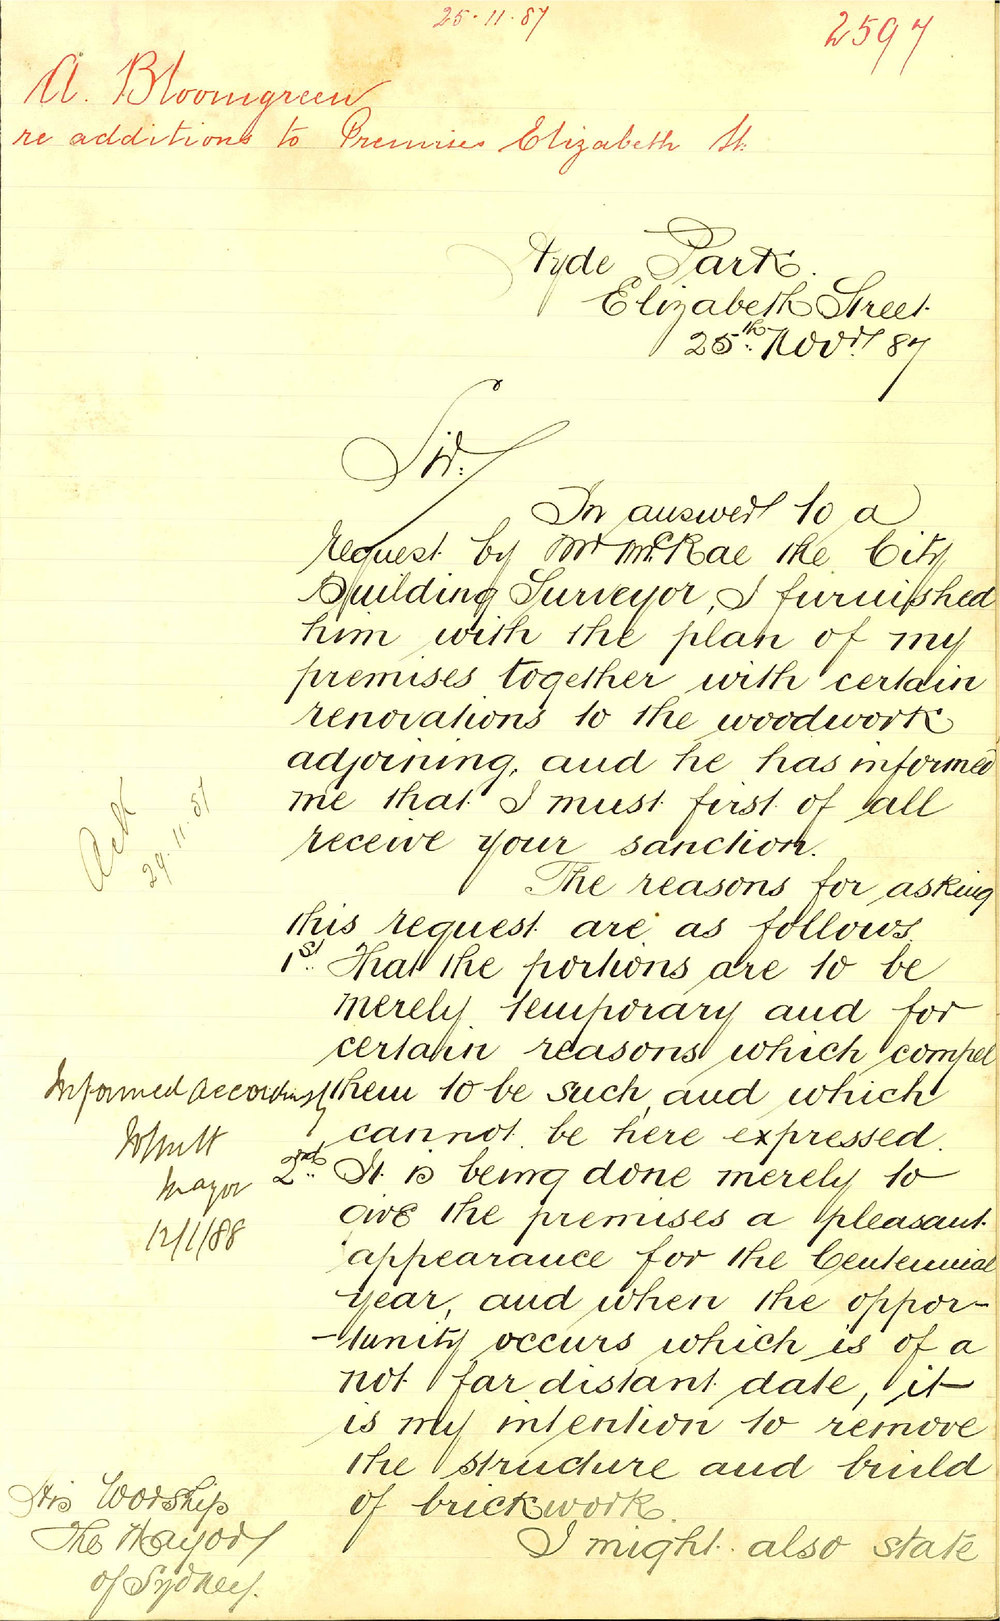 25·11·87
2597
A. Bloomgreen
re additions to Premises Elizabeth St.
Hyde Park.
Elizabeth Street.
25th Novr 87
Sir.
In answer to a
request by Mr McRae the City
Building Surveyor, I furnished
him with the plan of my
premises together with certain
renovations to the woodwork
adjoining, and he has informed
me that I must first of all
receive your sanction.
The reasons for asking
this request are as follows.
1st. That the portions are to be
merely temporary and for
certain reasons which compel
them to be such, and which
cannot be here expressed.
2nd. It is being done merely to
give the premises a pleasant
appearance for the Centennial
year, and when the oppor-
-tunity occurs which is of a
not far distant date, it
is my intention to remove
the structure and build
of brickwork.
I might also state
Ack
29·11·87
Informed accordingly
Mayor
12/1/88
His Worship
The Mayor
of Sydney.